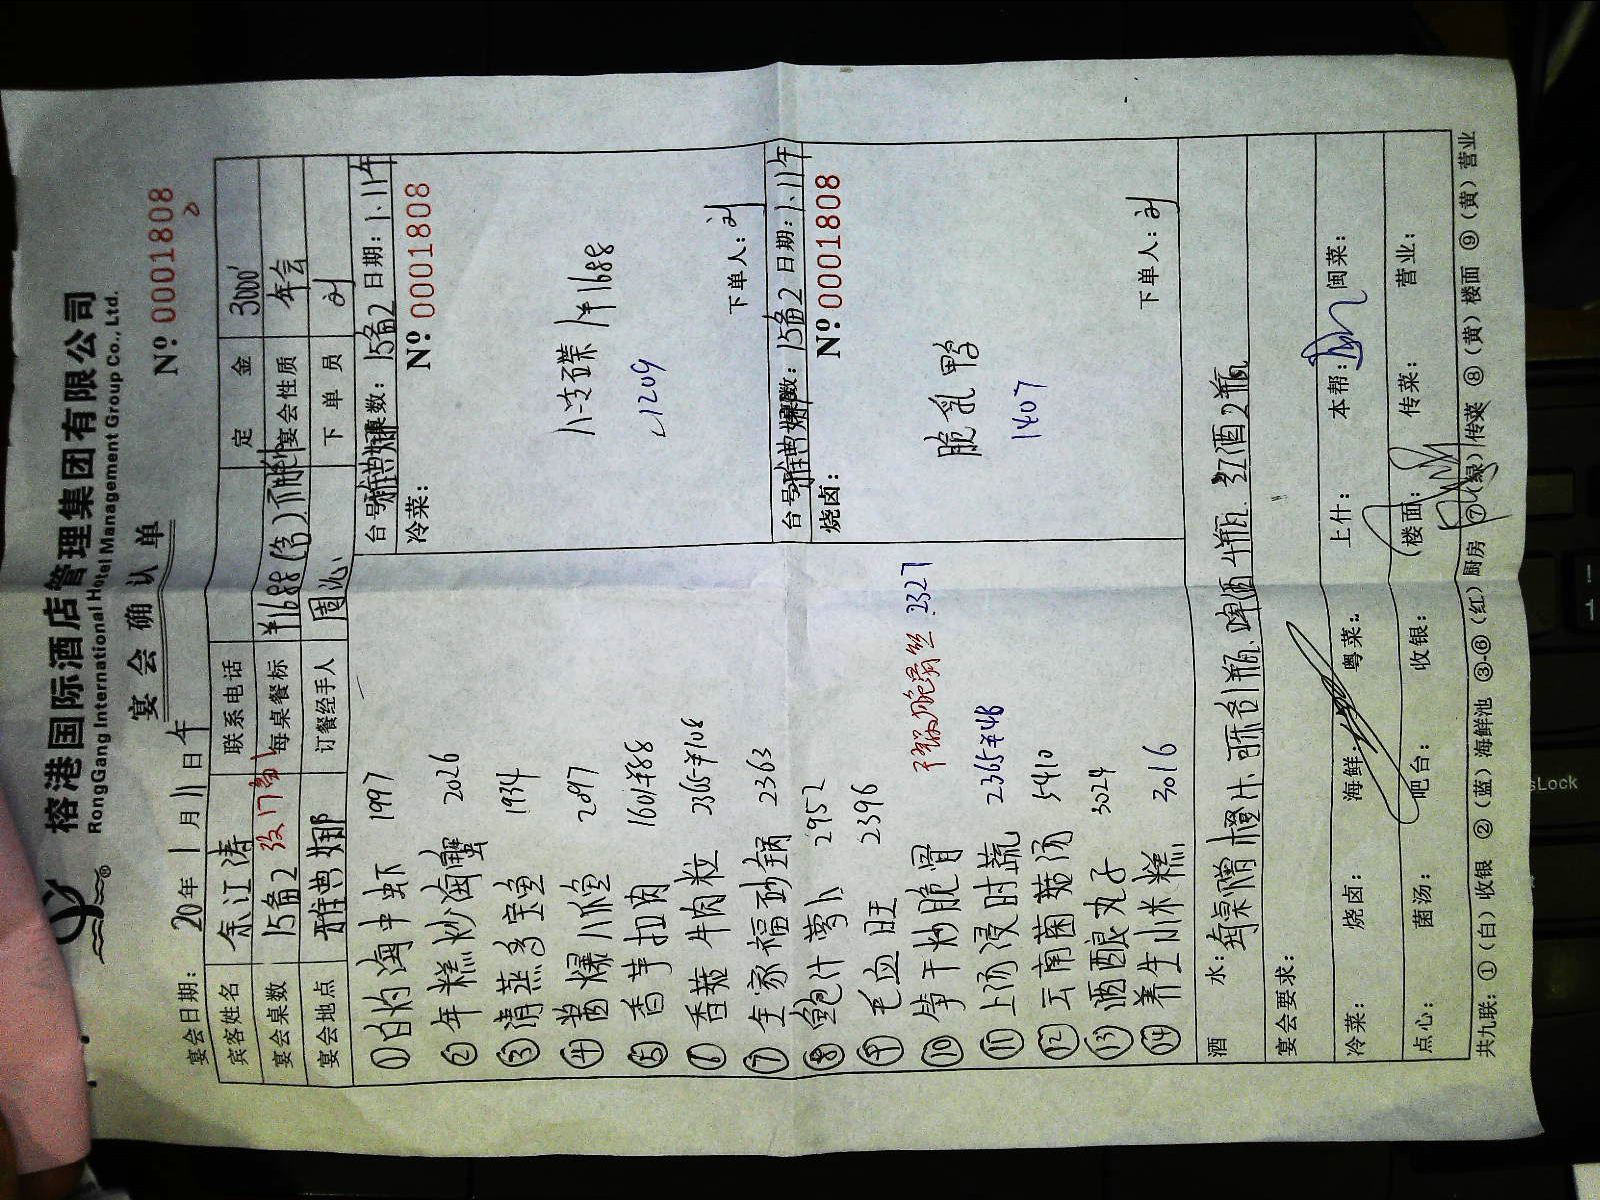 榕港国际酒店管理集团有限公司
RongGang International Hotel Management Group Co., Ltd.
宴会确认单
宴会日期: 20 年 1 月 11 日 午
Nº 0001808
宾客姓名 余江涛 联系电话 定金 3000
宴会桌数 15备2 每桌餐标 ¥1688(含) 宴会性质 年会
宴会地点 雅典娜 订餐经手人 周沁 下单员 刘
① 白灼海中虾 1997
② 年糕炒海蟹 2026
③ 清蒸多宝鱼 1934
④ 酱爆小鱼 2097
⑤ 香芋扣肉 1601 ¥88
⑥ 香菇牛肉粒 2365 ¥108
⑦ 全家福砂锅 2363
⑧ 鲍汁萝卜 2952
⑨ 毛血旺 2396
⑩ 笋干炒脆骨 2327
⑪ 上汤浸时蔬 2365 ¥48
⑫ 云南菌菇汤 5410
⑬ 酒酿丸子 3024
⑭ 养生小米糕 3016
台号: 雅典娜 桌数: 15备2 日期: 1.11午
冷菜: Nº 0001808
八支碟 / ¥1688
1209
下单人: 刘
台号: 雅典娜 桌数: 15备2 日期: 1.11午
烧卤: Nº 0001808
脆乳鸭
1407
下单人: 刘
酒水: 每桌赠橙汁 1瓶 啤酒4瓶 红酒2瓶
宴会要求:
冷菜: 烧卤: 海鲜: 粤菜: 上什: 本帮: 闽菜:
点心: 菌汤: 吧台: 收银: (楼面: 传菜: 营业:
共九联: ①(白)收银 ②(蓝)海鲜池 ③-⑥(红)厨房 ⑦(绿)传菜 ⑧(黄)楼面 ⑨(黄)营业